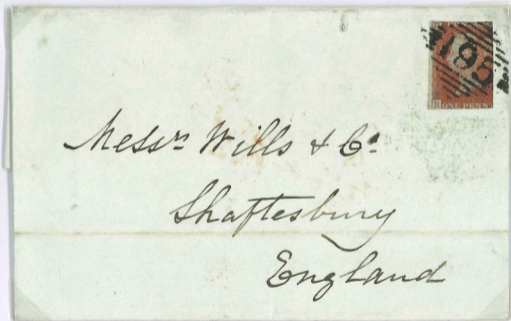 195
ONE PENNY
Messrs Wills & Co.
Shaftesbury
England